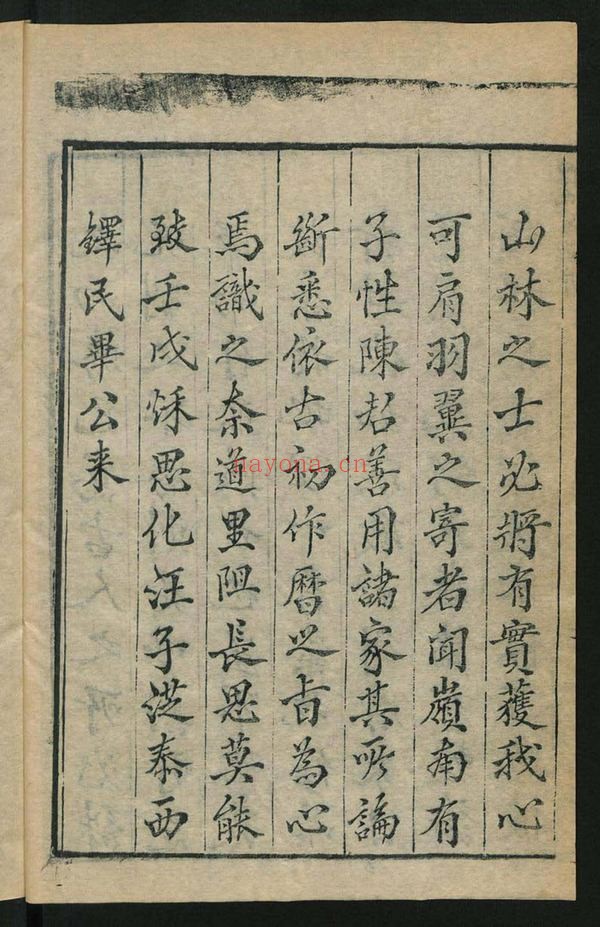 山林之士必將有實獲我心
可肩羽翼之寄者聞嶺南有
子性陳君善用諸家其所論
斷悉依古初作曆之旨為心
焉識之奈道里阻長思莫能
致壬戌秌思化汪子從泰西
鐸民畢公来
nayona.cn